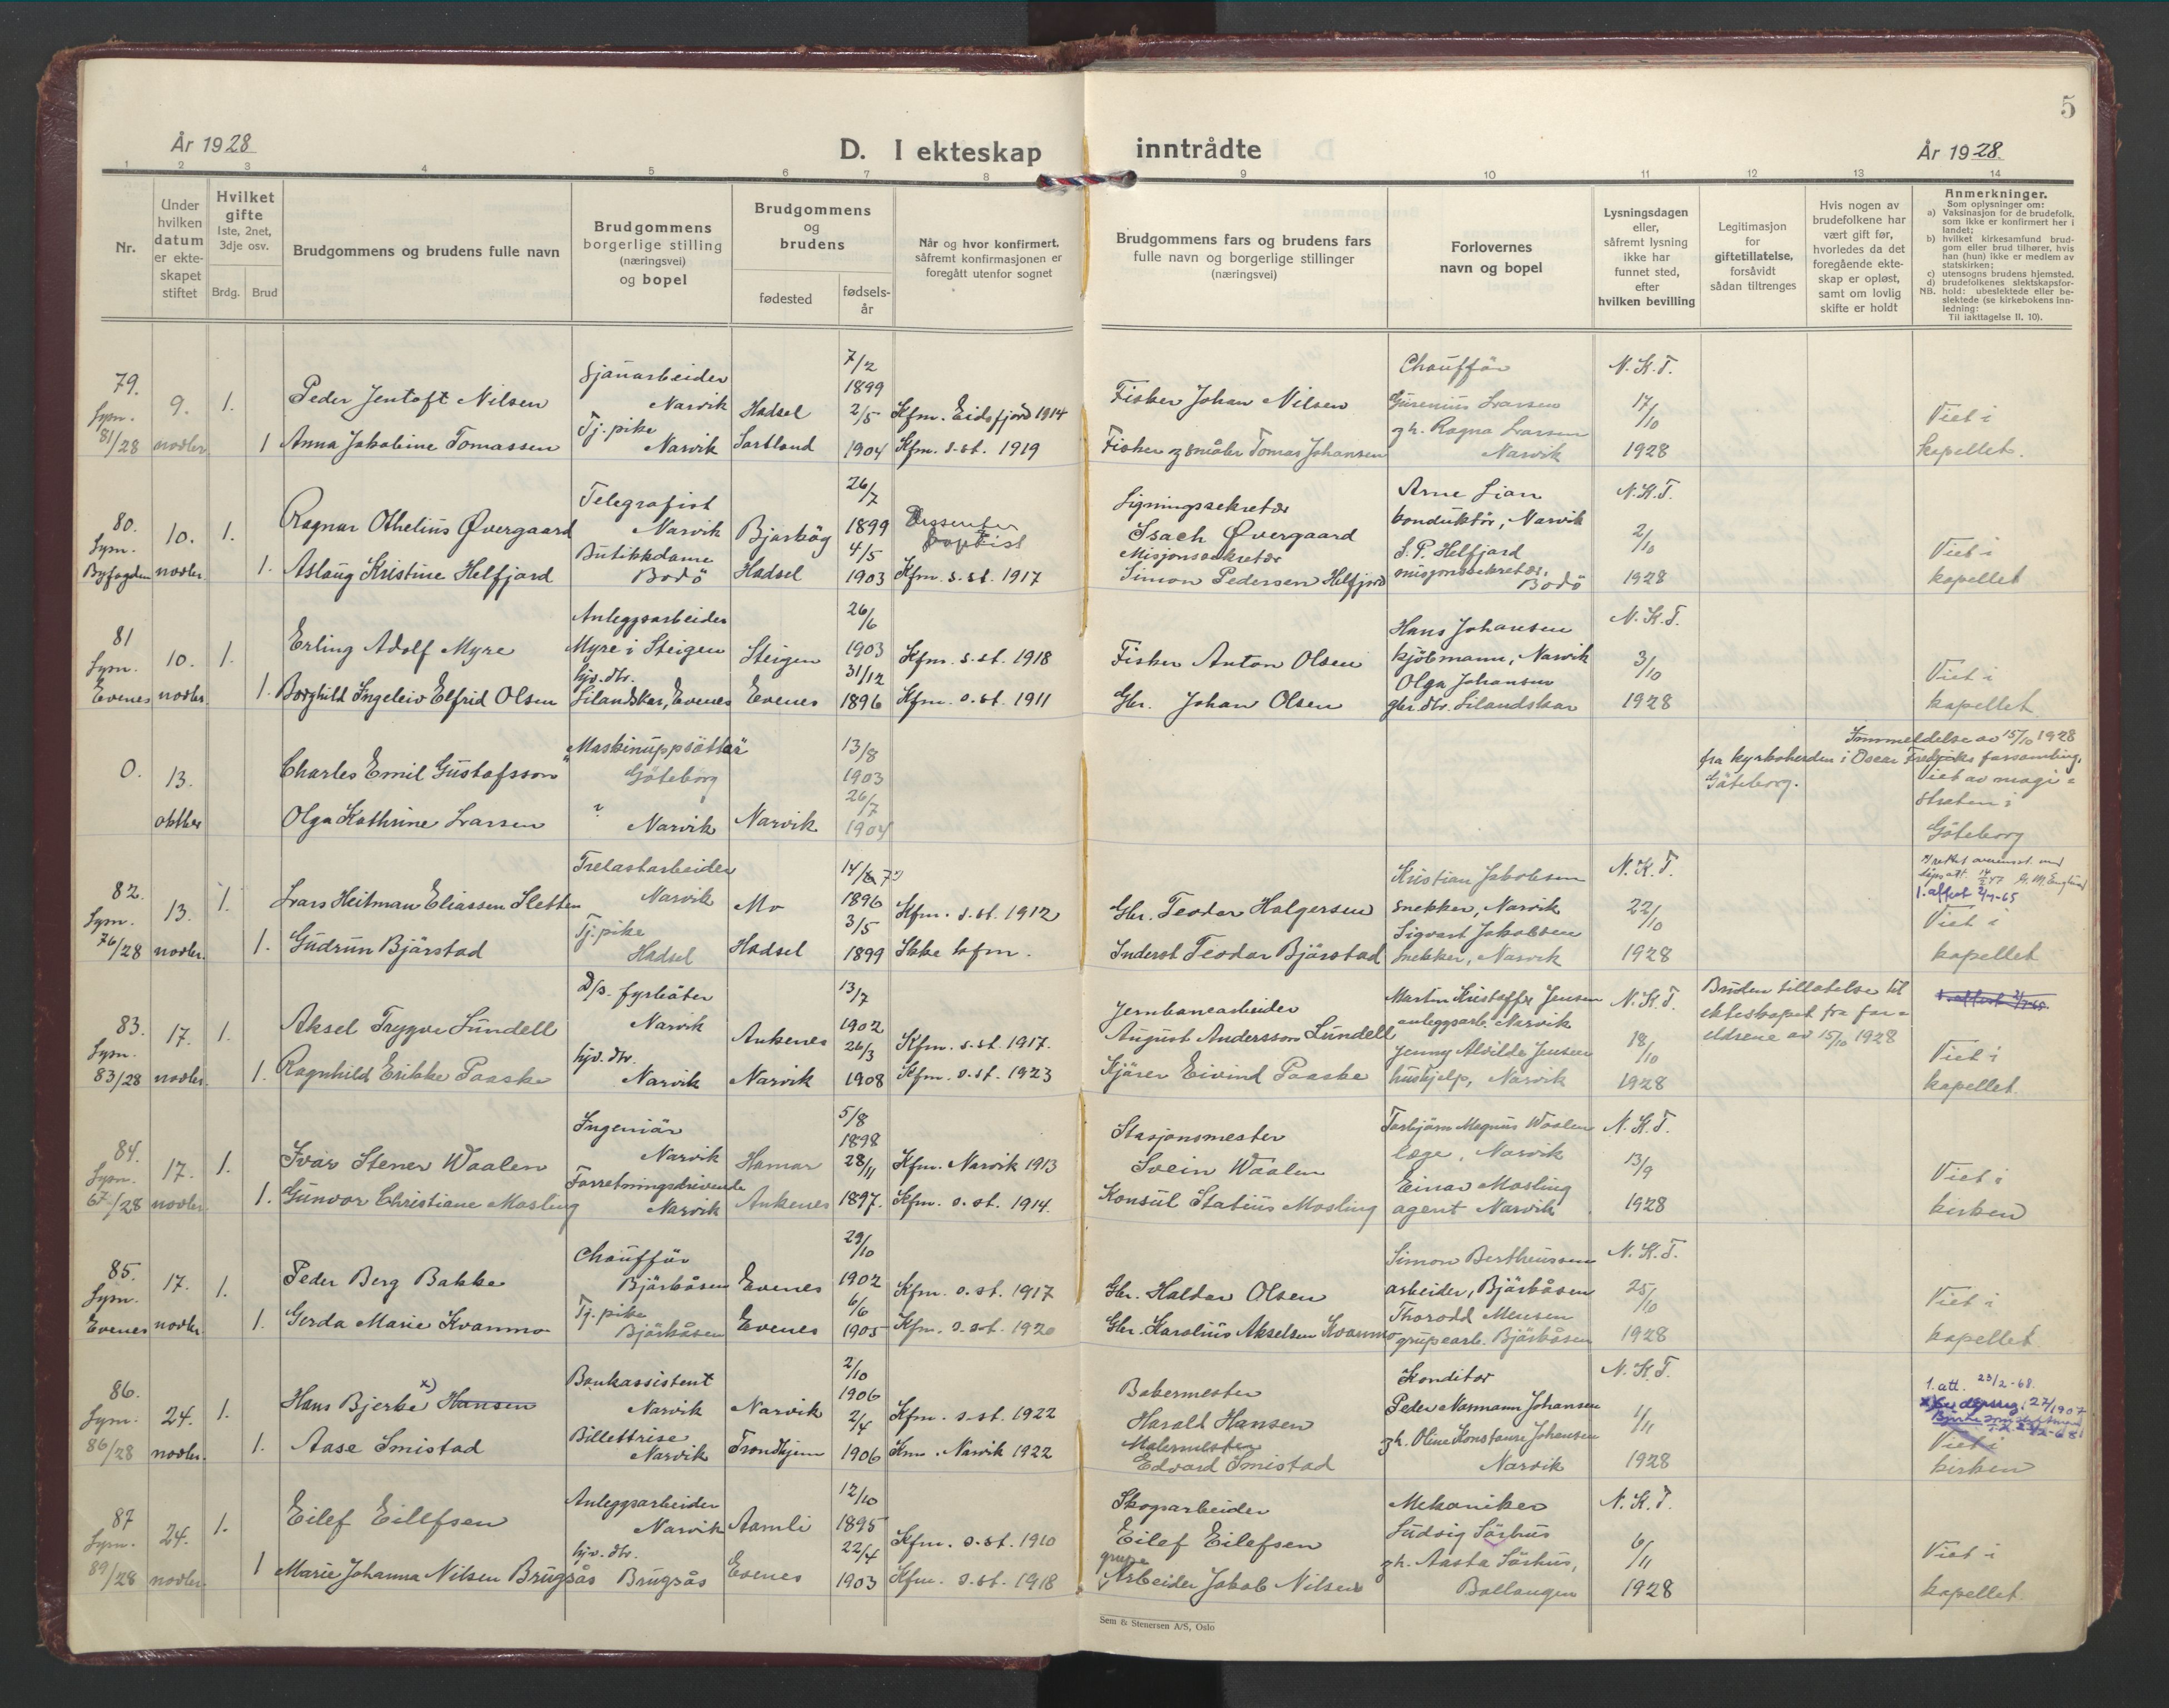 5
År 1928
D. I ekteskap inntrådte
År 1928.
1 2 3 4 5 6 7 8 9 10 11 12 13 14
Nr.
Under
hvilken
datum
er ekte-
skapet
stiftet
Hvilket
gifte
1ste, 2net,
3dje osv.
Brdg. Brud
Brudgommens og brudens fulle navn
Brudgommens
borgerlige stilling
(næringsvei)
og bopel
Brudgommens
og
brudens
fødested
fødsels-
år
Når og hvor konfirmert,
såfremt konfirmasjonen er
foregått utenfor sognet
Brudgommens fars og brudens fars
fulle navn og borgerlige stillinger
(næringsvei)
Forlovernes
navn og bopel
Lysningsdagen
eller,
såfremt lysning
ikke har
funnet sted,
efter
hvilken bevilling
Legitimasjon
for
giftetillatelse,
forsåvidt
sådan tiltrenges
Hvis nogen av
brudefolkene har
vært gift før,
hvorledes da det
foregående ekte-
skap er opløst,
samt om lovlig
skifte er holdt
Anmerkninger.
Som oplysninger om:
a) Vaksinasjon for de brudefolk.
som ikke er konfirmert her i
landet;
b) hvilket kirkesamfund brud-
gom eller brud tilhører, hvis
han (hun) ikke er medlem av
statskirken;
c) utensogns brudens hjemsted.
d) brudefolkenes slektskapsfor-
NB. hold: ubeslektede eller be-
slektede (se kirkebokens inn-
ledning:
Til iakttagelse II. 10).
79.
Lysn.
81/28
9.
novbr.
1.
1
Peder Jentoft Nilsen
Anna Jakobine Tomassen
Sjauarbeider
Narvik
Tj. pike
Narvik
Hadsel
Sortland
7/2
1899
2/5
1904
Kfm. Eidsfjord 1914
Kfm. s. st. 1919
Fisker Johan Nilsen
Fisker og småbr. Tomas Johansen
Chaufför
Gurenius Larsen
gh. Ragna Larsen
Narvik
N. K. T.
17/10
1928
Viet i
kapellet.
80.
Lysn.
Byfogden
10.
novbr.
1.
1.
Ragnar Othelius Øvergaard
Aslaug Kristine Helfjord
Telegrafist
Narvik
Butikkdame
Bodö
Bjarköy
Hadsel
26/7
1899
4/5
1903
Dissenter
baptist
Kfm. s. st. 1917
Ligningssekretær
Isach Øvergaard
Misjonssekretær
Simon Pedersen Helfjord
Arne Lian
konduktör, Narvik
S. P. Helfjord
misjonssekretær,
Bodö
N. K. T.
2/10
1928
Viet i
kapellet
81
Lysn.
Evenes
10.
novbr.
1.
1.
Erling Adolf Myre
Borghild Ingeleiv Elfrid Olsen
Anleggsarbeider
Myre i Steigen
hjv. dtr.
Lilandskar, Evenes
Steigen
Evenes
26/6
1903
31/12
1896
Kfm. s. st. 1918
Kfm. s. st. 1911
Fisker Anton Olsen
Gbr. Johan Olsen
Hans Johansen
kjöbmann, Narvik
Olga Johansen
gbr. dtr. Lilandskar
N. K. T.
3/10
1928
Viet i
kapellet
0.
13.
oktber
Charles Emil Gustafsson
Olga Kathrine Larsen
"Maskinuppsättar"
Göteborg
?
Narvik
Narvik
13/8
1903
26/7
1904
Innmeldelse av 15/10 1928
fra kyrkoherden i Oscar Fredriks forsamling,
Göteborg.
Viet av magi-
straten i
Göteborg
82.
Lysn.
76/28
13.
novbr.
1.
1.
Lars Heitman Eliassen Sletten
Gudrun Bjärstad
Trelastarbeider
Narvik
Tj. pike
Hadsel
Mo
Hadsel
1896
3/5
1899
Kfm. s. st. 1912
Ikke kfm.
Gbr. Teodor Holgersen
Inderst Teodor Bjärstad
Kristian Jakobsen
snekker, Narvik
Sigvart Jakobsen
snekker, Narvik
N. K. T.
22/10
1928
1. attest 2/7-65
Viet i
kapellet
83.
Lysn.
83/28
17.
novbr.
1.
1.
Aksel Trygve Lundell
Ragnhild Erikke Paaske
D/s. fyrböter
Narvik
hjv. dtr.
Narvik
Ankenes
Narvik
13/7
1902
26/3
1908
Kfm. s. st. 1917.
Kfm. s. st. 1923
Jernbanearbeider
August Andersson Lundell
Kjärer Eivind Paaske
Martin Kristoffer Jensen
anleggsarb. Narvik
Jenny Alvilde Jensen
hushjelp, Narvik
N. K. T.
18/10
1928
Bruden tillatelse til
ekteskapet fra for-
eldrene av 15/10 1928
Viet i
kapellet.
84.
Lysn.
67/28
17.
novbr.
1.
1.
Ivar Stener Waalen
Gunvor Christiane Mosling
Ingeniör
Narvik
Forretningsdrivende
Narvik
Hamar
Ankenes
5/8
1898
28/11
1897.
Kfm. Narvik 1913
Kfm. s. st. 1914.
Stasjonsmester
Svein Waalen
Konsul Statius Mosling
Torbjörn Magnus Waalen
læge, Narvik
Einar Mosling
agent Narvik
N. K. T.
13/9
1928
Viet i
kirken
85.
Lysn.
Evenes
17.
novbr.
1.
1.
Peder Berg Bakke
Gerda Marie Kvanmo
Chauffür
Bjärkåsen
Tj. pike
Bjärkåsen
Evenes
Evenes
29/10
1902
6/6
1905
Kfm. s. st. 1917
Kfm. s. st. 1920
Gbr. Haldor Olsen
Gbr. Karolius Akselsen Kvanmo
Simon Bertheussen
arbeider, Bjärkåsen
Thorodd Mensen
grupearb. Bjärkåsen
N. K. T.
25/10
1928
Viet i
kapellet.
86.
Lysn.
86/28
24.
novbr.
1.
1.
Hans Bjerke x) Hansen
Aase Smistad
Bankassistent
Narvik
Billettrise
Narvik
Narvik
Trondhjem
2/10
1906
2/4
1906
Kfm. s. st. 1922
Kfm. Narvik 1922
Bakermester
Harald Hansen
Malermester
Edvard Smistad
Konditor
Peder Normann Johansen
gh. Oline Konstanse Johansen
Narvik
N. K. T.
1/11
1928
1. att. 23/2-68.
Viet i
kirken
87
Lysn.
89/28
24.
novbr.
1.
1
Eilef Eilefsen
Marie Johanna Nilsen Brugsås
Anleggsarbeider
Narvik
hjv. dtr.
Brugsås
Aamli
Evenes
12/10
1895
22/4
1903
Kfm. s. st. 1910
Kfm. s. st. 1918
Skogarbeider
Eilef Eilefsen
grupe
Arbeider Jakob Nilsen
Mekaniker
Ludvig Sörhus
gh. Aasta Sörhus,
Ballangen
N. K. T.
6/11
1928
Viet i
kapellet.
Sem & Stenersen A/S, Oslo